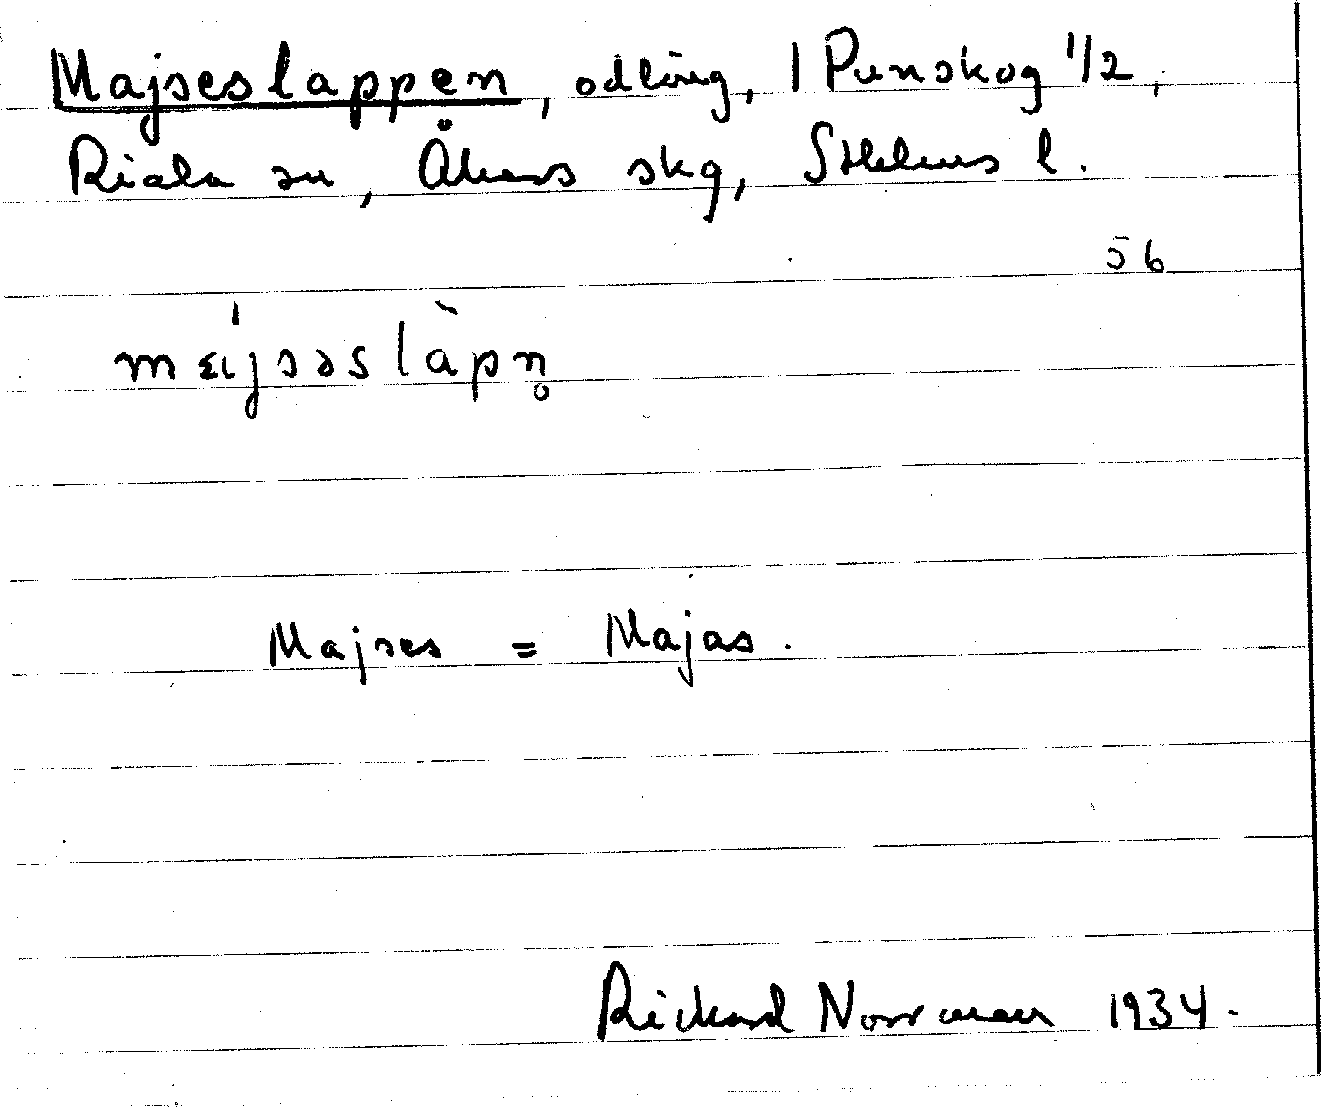 Majseslappen, odling, 1 Punskog 1/2,
Riala sn, Åkers skg, Sthlms l.
56
máijsəslàpn̥
Majses = Majas.
Rickard Norrman 1934.